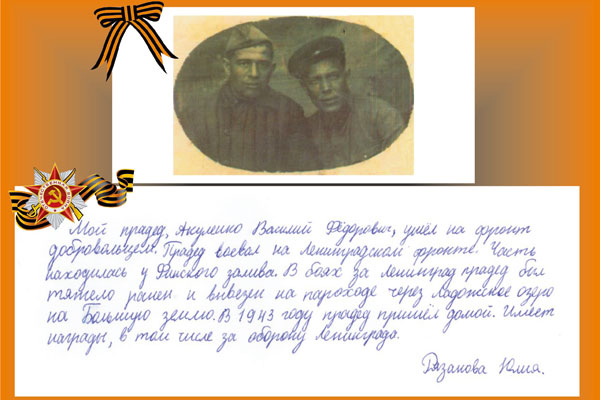 Мой прадед, Акуленко Василий Фёдорович, ушёл на фронт
добровольцем. Прадед воевал на Ленинградском фронте. Часть
находилась у Финского залива. В боях за Ленинград прадед был
тяжело ранен и вывезен на пароходе через Ладожское озеро
на Большую землю. В 1943 году прадед пришёл домой. Имеет
награды, в том числе за оборону Ленинграда.
Рязанова Юлия.